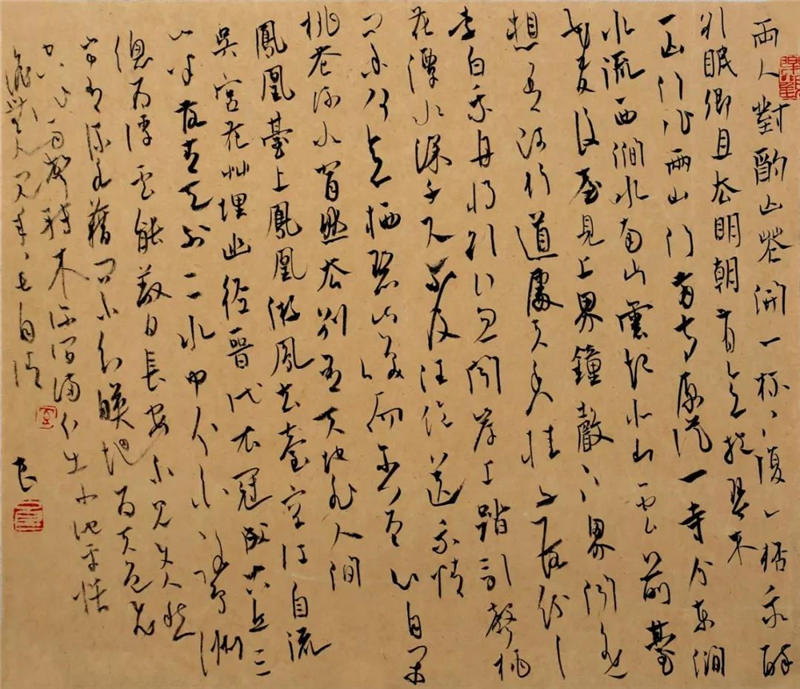 兩人對酌山花開一杯〻復一杯我醉
欲眠卿且去明朝有意抱琴來
一山門作兩山門兩寺原從一寺分東澗
水流西澗水南山雲起北山雲前臺
花發後臺見上界鐘聲下界聞遙
想吾師行道處天香桂子落紛〻
李白乘舟將欲行忽聞岸上踏歌聲桃
花潭水深千尺不及汪倫送我情
問余何意栖碧山笑而不答心自閑
桃花流水窅然去別有天地非人間
鳳凰臺上鳳凰遊鳳去臺空江自流
吳宮花艸埋幽徑晉代衣冠成古丘三
山半落青天外二水中分白鷺洲
總為浮雲能蔽日長安不見使人愁